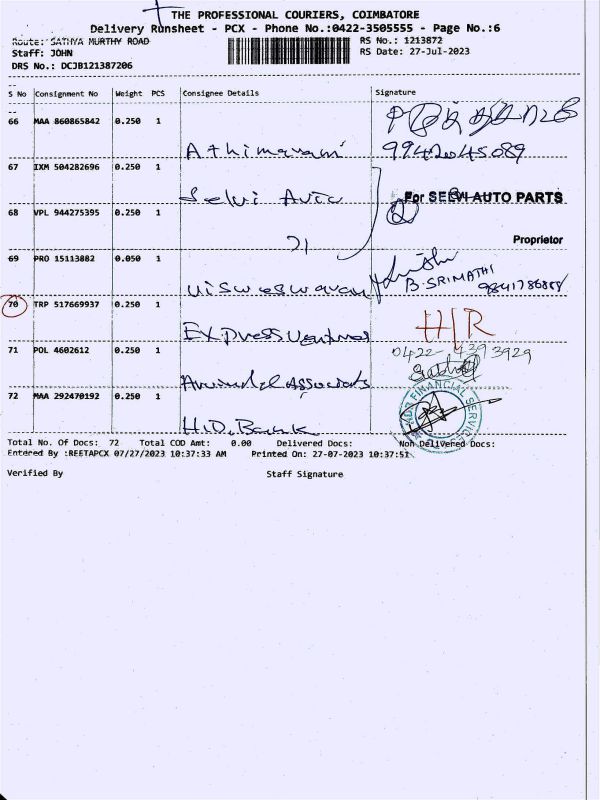 THE PROFESSIONAL COURIERS, COIMBATORE
Delivery Runsheet - PCX - Phone No.:0422-3505555 - Page No.:6
Route: SATHYA MURTHY ROAD RS No.: 1213872
Staff: JOHN RS Date: 27-Jul-2023
DRS No.: DCJB121387206
S No Consignment No Weight PCS Consignee Details Signature
66 MAA 860865842 0.250 1
Athimavani 9942045089
67 IXM 504282696 0.250 1
Selvi Auto For SELVI AUTO PARTS
68 VPL 944275395 0.250 1
Proprietor
69 PRO 15113882 0.050 1
Visweswaran B.SRIMATHI
70 TRP 517669937 0.250 1
Express Ventures H/R
71 POL 4602612 0.250 1 0422-4393929
Associats
72 MAA 292470192 0.250 1 FINANCIAL SERVICES
H.D. Bank
Total No. Of Docs: 72 Total COD Amt: 0.00 Delivered Docs: Non Delivered Docs:
Entered By :REETAPCX 07/27/2023 10:37:33 AM Printed On: 27-07-2023 10:37:51
Verified By Staff Signature